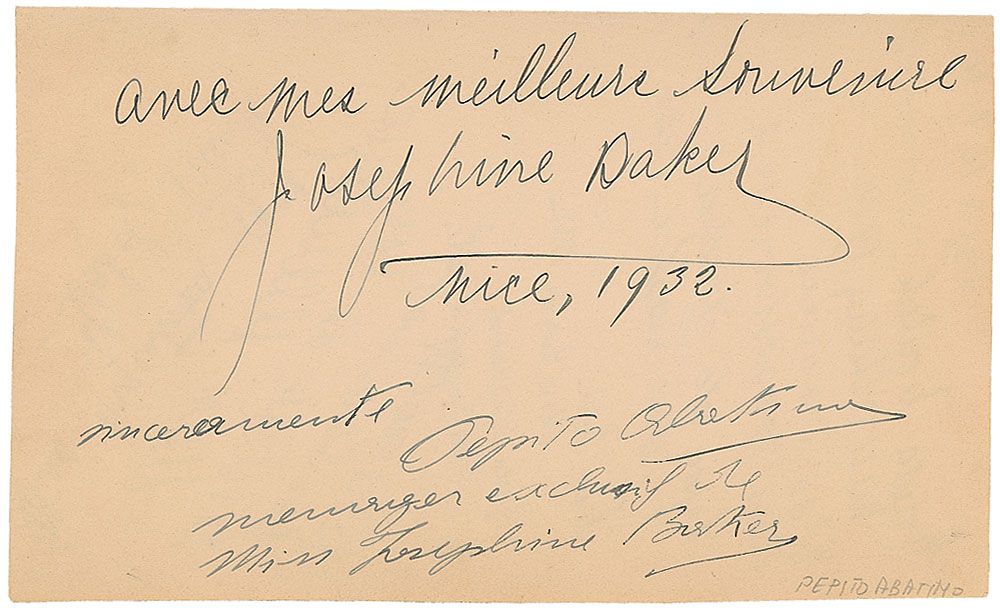 avec mes meilleurs souvenirs
Josephine Baker
Nice, 1932.
sinceramente
Pepito Abatino
manager exclusif de
Miss Josephine Baker
PEPITO ABATINO